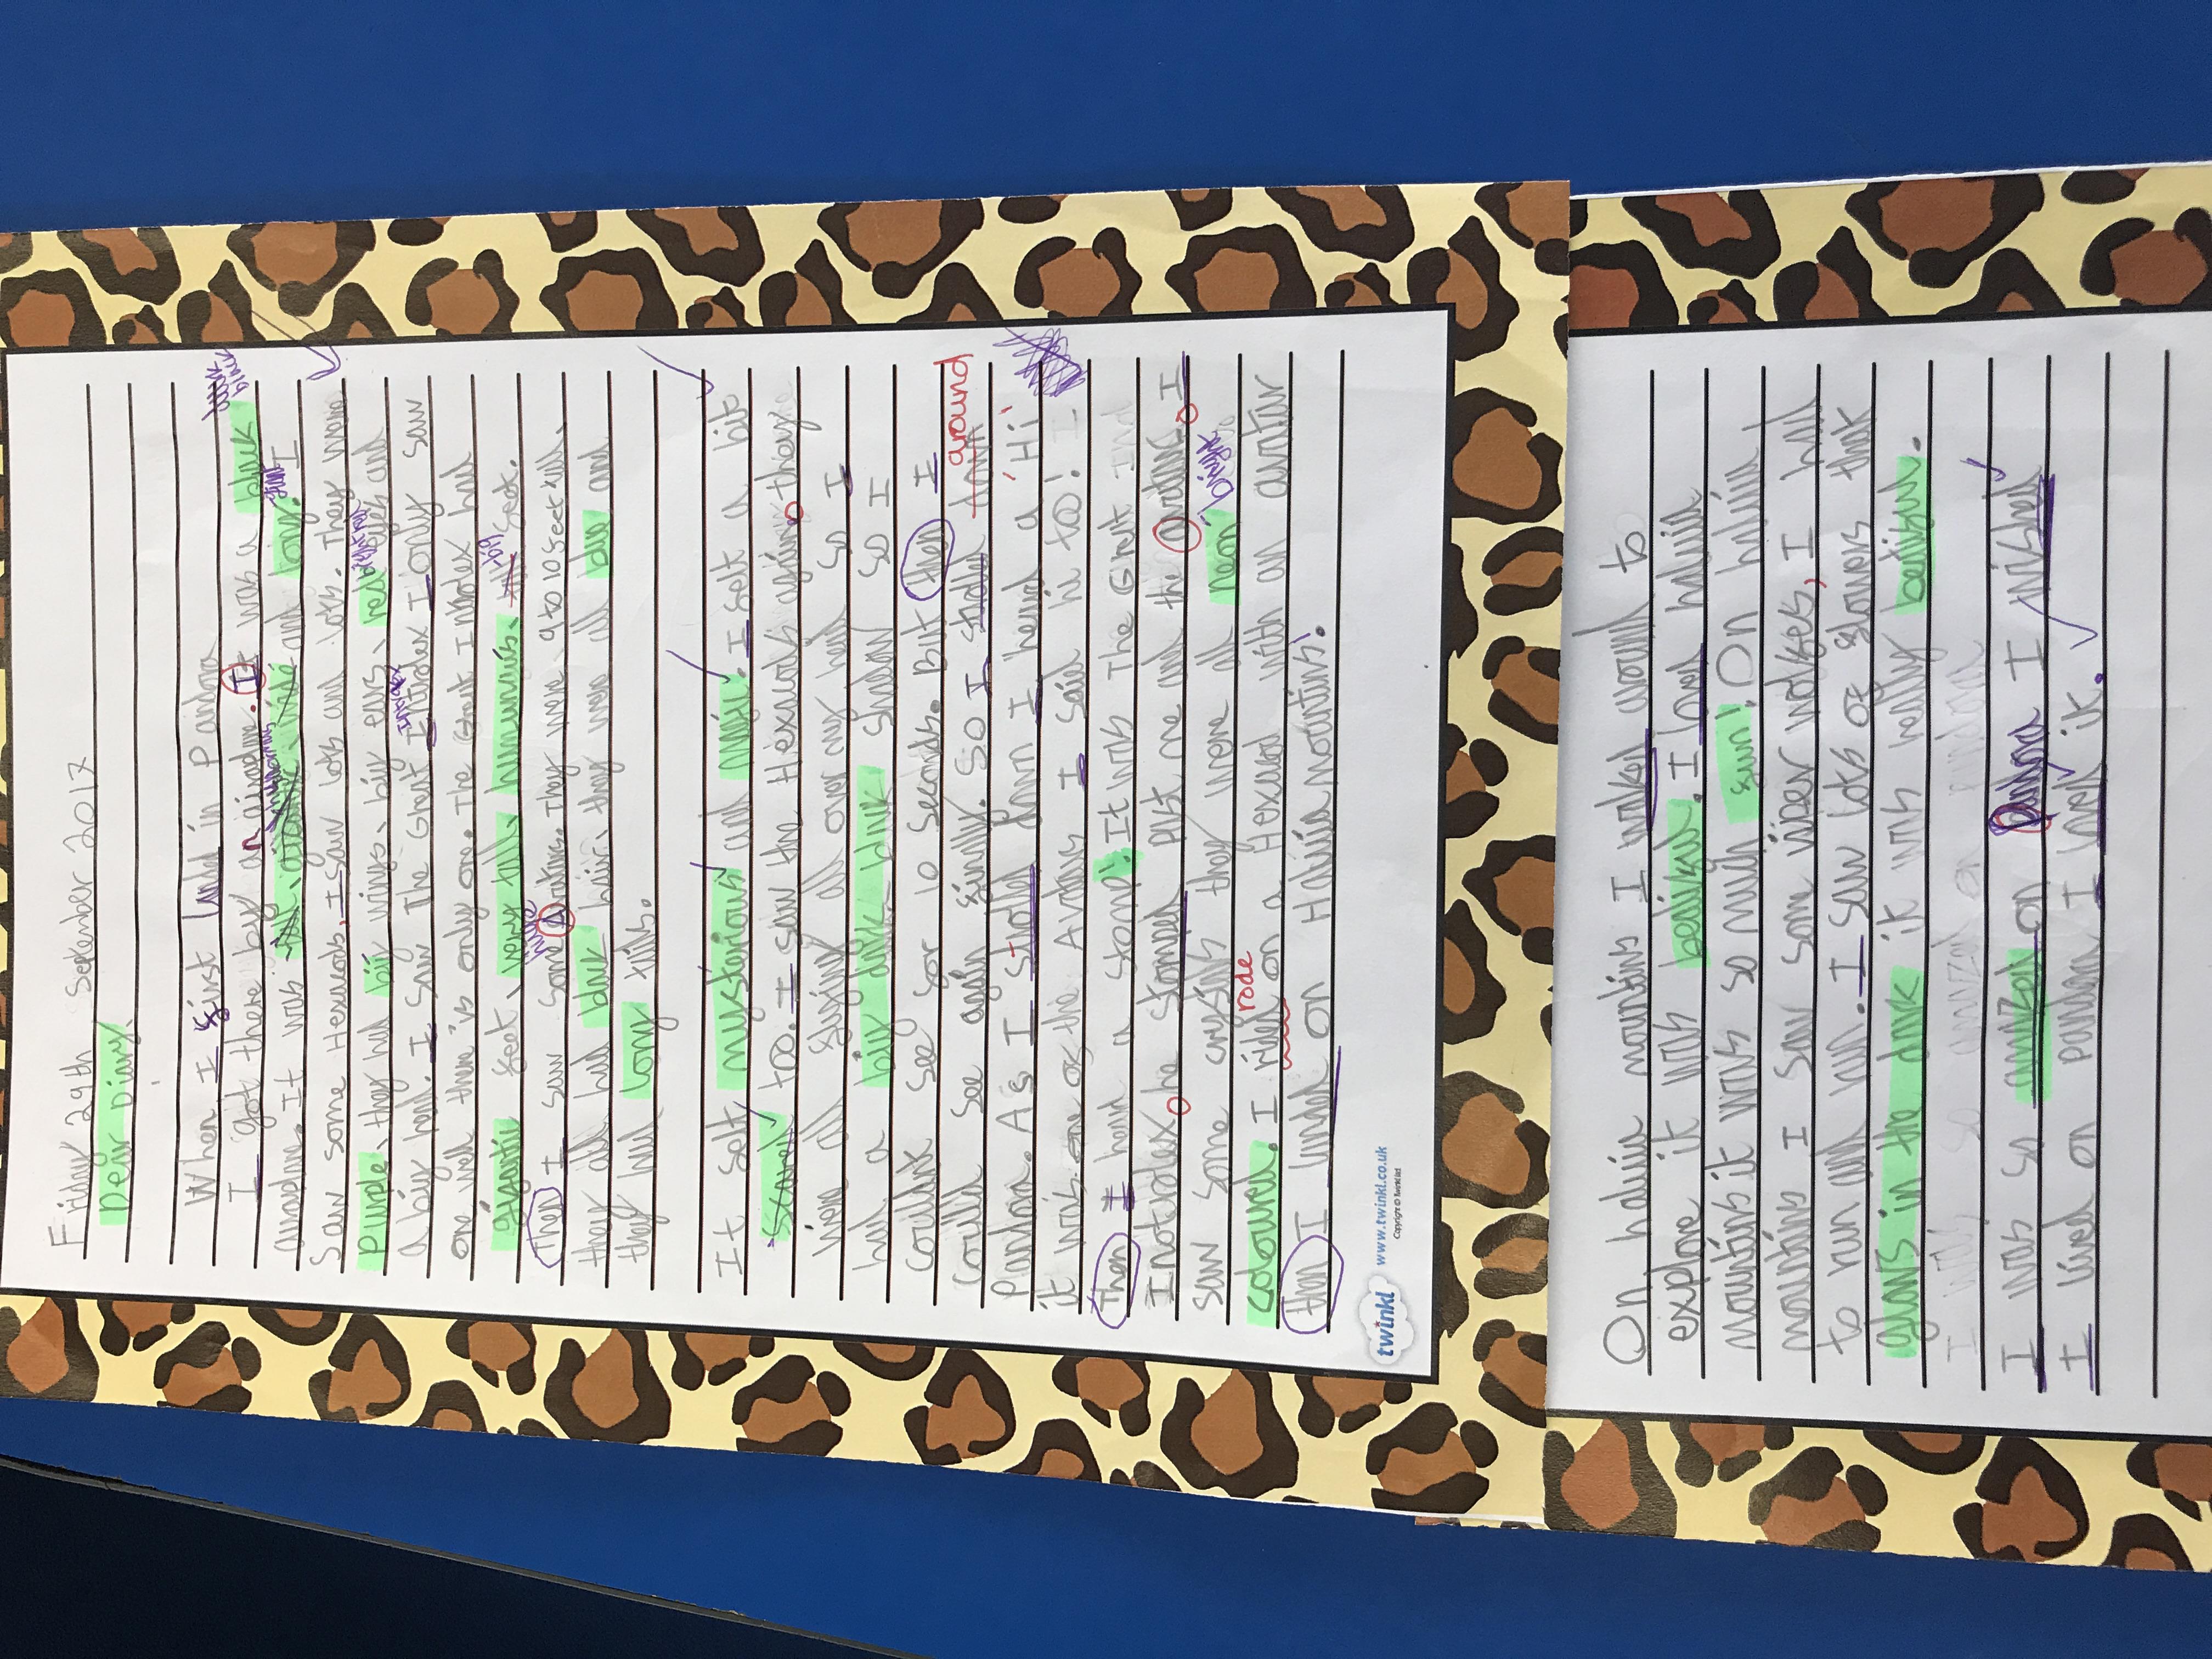 Friday 29th September 2017
Dear Diary,
When I first landed in Pandora
I got there by an airoplane. It was a black
black
was and long. I
Saw some Hexuods, I saw lots and lots. They were
Purple, they had big wings, big ears, red eyes and
a big head. I saw The Great Introlex I only saw
Introlex
one well there is only one. The Great Introlex had
gigantic feet, very tall, humungus, feet.
big
Then I saw some Avatars. They were 9 to 10 feet tall,
they all had black hair, they were all blue and
they had long tails.
It felt mysterious and magic. I felt a bit
Scared too. I saw the Hexuods agin they
were all flying all over my head so I
had a big dark blink Shadow so I
couldnt see for 10 seconds. But then I
could see again finally. So I
around
Pandora. As I strolled down I heard a 'Hi'
it was one of the Avatars I said hi too! I
Then I heard a stomp! It was The Great
Introlex he stomped past me and the avatars. I
saw some crystals they were all neon
bright
colours. I rode on a Hexuod with an avatar
then I landed on Haluia mountins!.
twinkl www.twinkl.co.uk
Copyright © twinkl ltd
On haluia mountins I walked around to
explore it was beatifull. I loved haluia
mountins it was so much fun! On haluia
mountins I saw some viper wolfes, I had
to run and run. I saw lots of flowers that
glows in the dark it was really beatifull.
I was so amazed on pandora
I was so amazed on Pandora I wished
I lived on pandora I loved it.